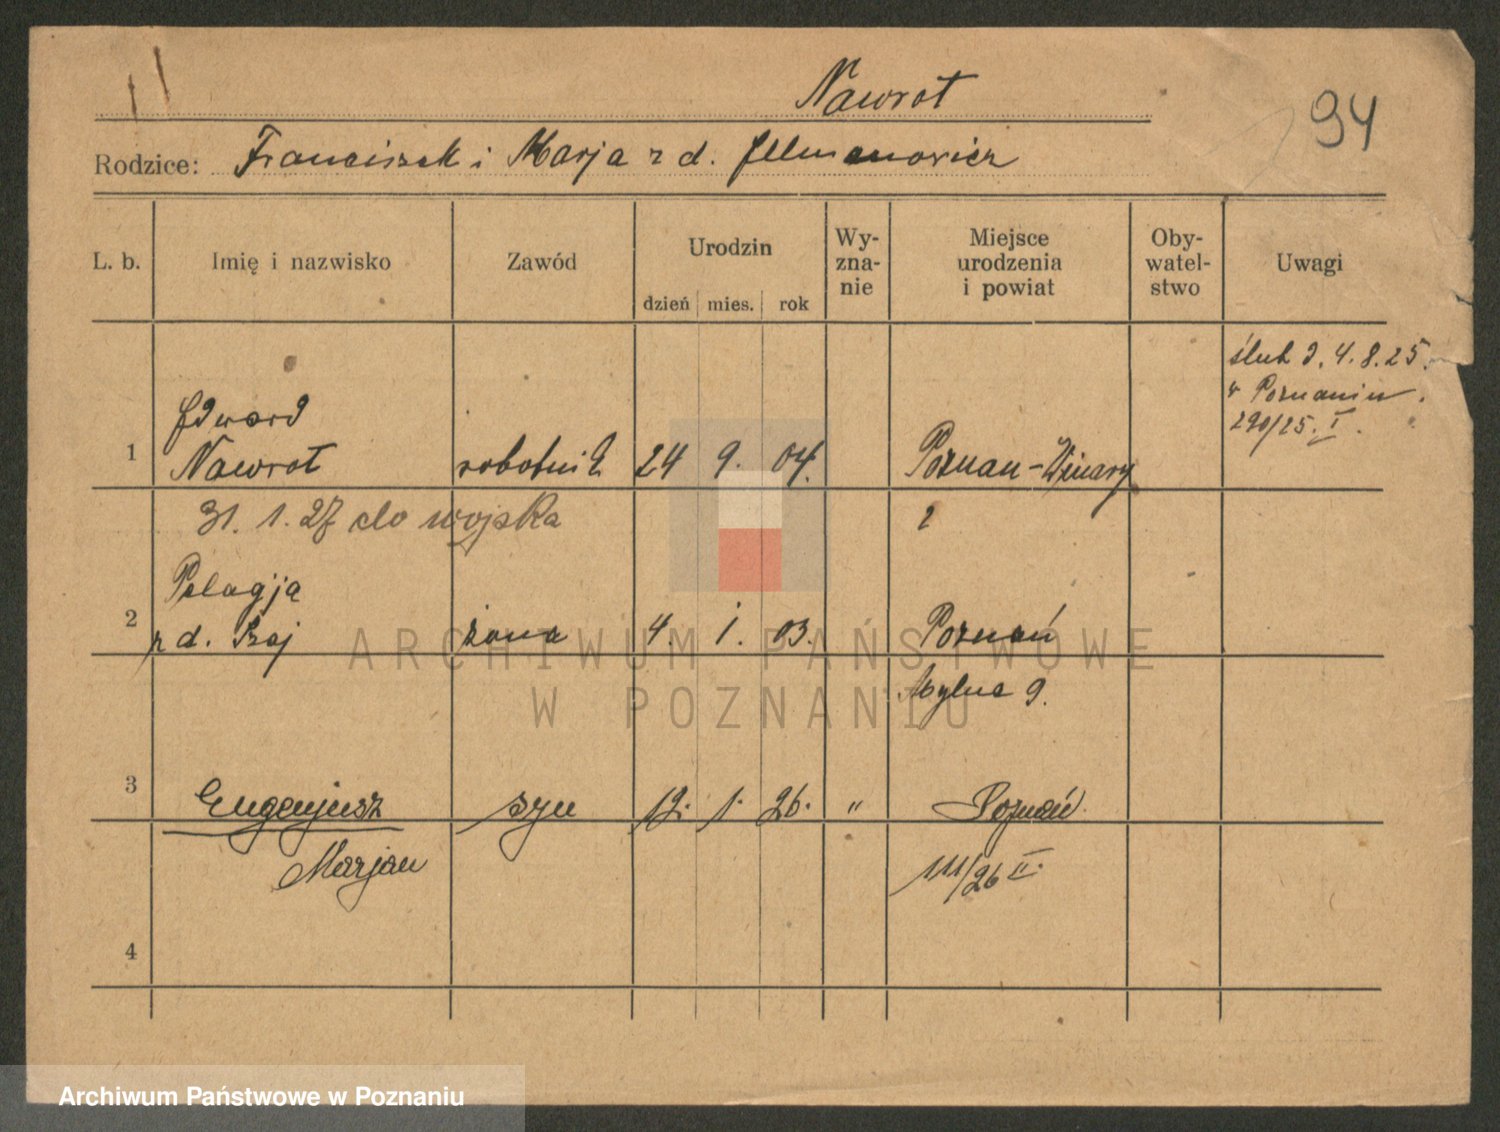 Nawrot
94
Rodzice: Franciszek i Marja z d.
L. b. Imię i nazwisko Zawód Urodzin Wy-zna-nie Miejsce urodzenia i powiat Oby-watel-stwo Uwagi
dzień mies. rok
ślub d. 4.8.25.
w Poznaniu.
290/25. I.
Edward
1 Nawrot robotnik 24 9. 04. Poznan-Winary
31. 1. 27 do wojska
Pelagja
2 z d. żona 4. 1. 03. Poznań
Mylna 9.
3 Eugenjusz syn 12. 1. 26. " Poznań.
Marjan
111/26 II.
4
ARCHIWUM PAŃSTWOWE
W POZNANIU
Archiwum Państwowe w Poznaniu